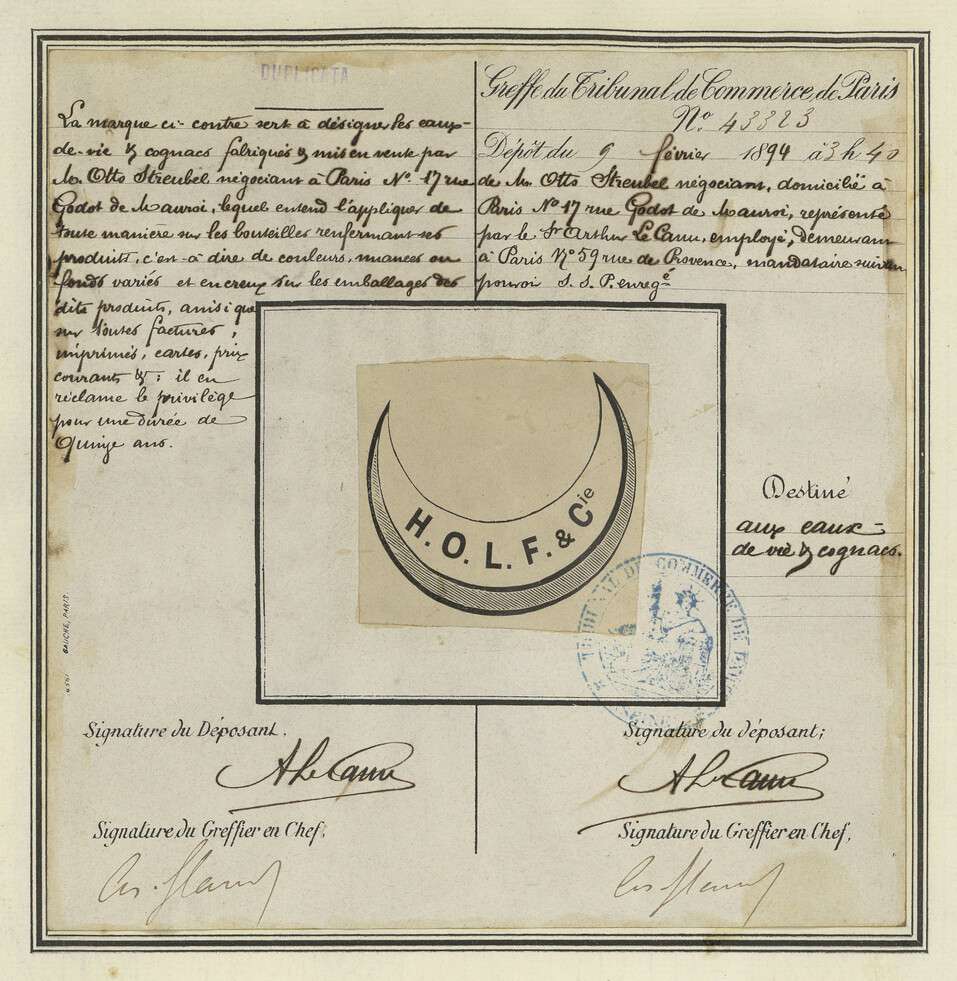 DUPLICATA
La marque ci-contre sert à désigner les eaux-
de-vie & cognacs fabriqués & mis en vente par
M. Otto Streubel négociant à Paris No. 17 rue
Godot de Mauroi, lequel entend l'appliquer de
toute manière sur les bouteilles renfermant ses
produits, c'est-à dire de couleurs, nuances ou
fonds variés et en creux sur les emballages des
dits produits, ainsi que
sur toutes factures,
imprimés, cartes, prix
courants &; il en
réclame le privilège
pour une durée de
Quinze ans.
Greffe du Tribunal de Commerce de Paris
No. 43323
Dépôt du 9 février 1894 à 3 h 40
de M. Otto Streubel négociant, domicilié à
Paris No 17 rue Godot de Mauroi, représenté
par le Sr Arthur Le Canu, employé, demeurant
à Paris No 59 rue de Provence, mandataire suivant
pouvoir S. S. P. enregé
H. O. L. F. & Cie
Destiné
aux eaux-
de vie & cognacs.
TRIBUNAL DE COMMERCE DE PARIS
SEINE
GAUCHE, PARIS
Signature du Déposant.
A Le Canu
Signature du Greffier en Chef.
Signature du déposant;
A Le Canu
Signature du Greffier en Chef.